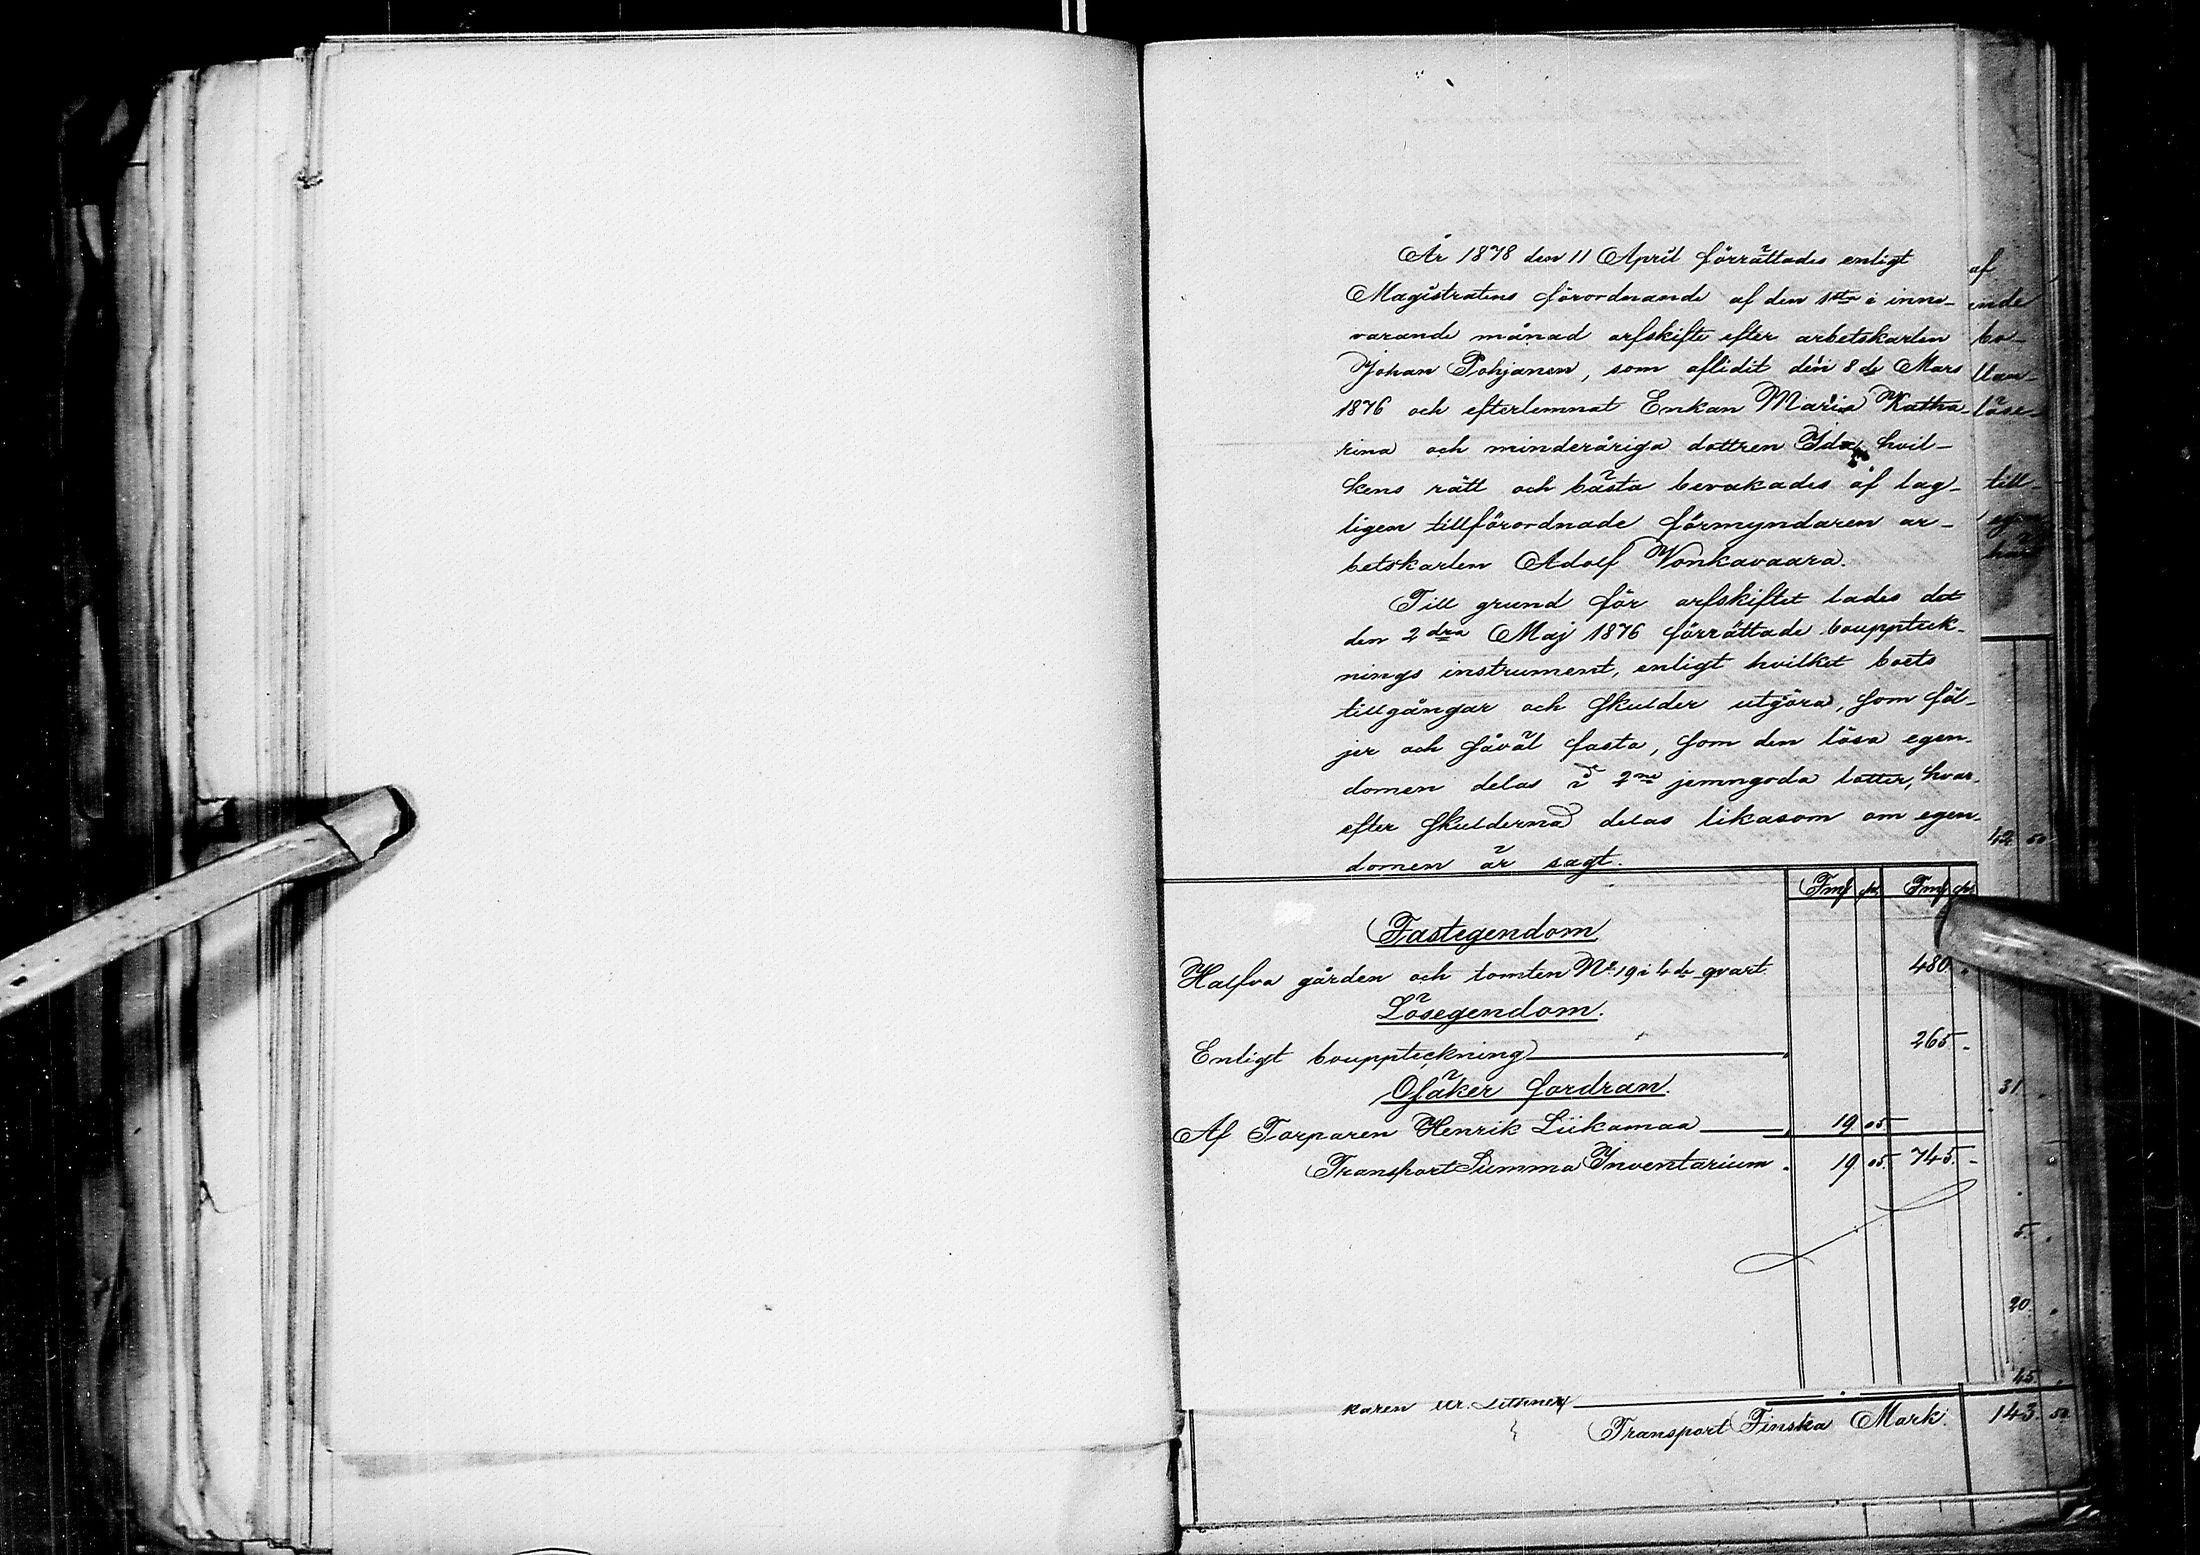 År 1878 den 11 April förrättades enligt
Magistratens förordnande af den 1sta i inne-
varande månad arfskifte efter arbetskarlen
Johan Pohjanen, som aflidit den 8de Mars
1876 och efterlemnat Enkan Maria Katha-
rina och minderåriga dottren Ida, hvil-
kens rätt och bästa bevakades af lag-
ligen tillförordnade förmyndaren ar-
betskarlen Adolf Vonkavaara.
Till grund för arfskiftet lades det
den 2dra Maj 1876 förrättade bouppteck-
nings instrument, enligt hvilket boets
tillgångar och skulder utgöra, som föl-
jer och såväl fasta, som den lösa egen-
domen delas i 2ne jemngoda lotter, hvar-
efter skulderna delas likasom om egen-
domen är sagt.
Fmf pi Fmf pi
Fastegendom
Halfva gården och tomten No 19 i 4de qvart. 480 "
Lösegendom.
Enligt bouppteckning 265 -
Osäker fordran.
Af Torparen Henrik Liikamaa 19 05
Transport Summa Inventarium. 19 05 745 -
af
ende
bo-
löse-
till-
42 50
31
5
20
45
karen Ur. Lithner
Transport Finska Mark 143 50